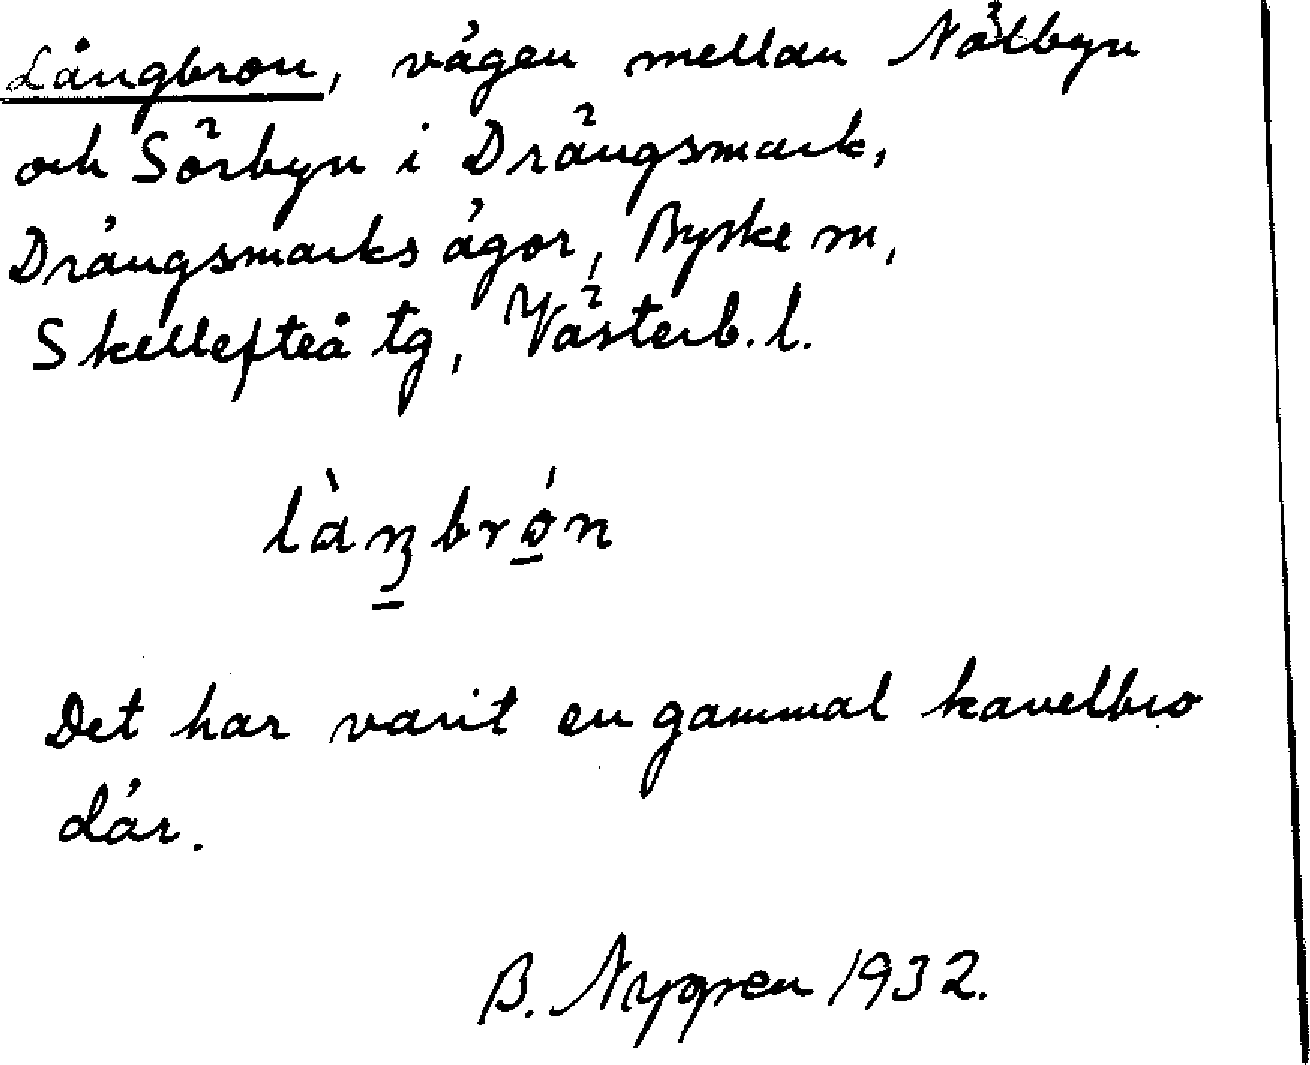 Långbron, vägen mellan Nålbyn
och Sörbyn i Drängsmark,
Drängsmarks ägor, Byske sn,
Skellefteå tg, Västerb. l.
làŋbrǿn
Det har varit en gammal kavelbro
där.
B. Nygren 1932.